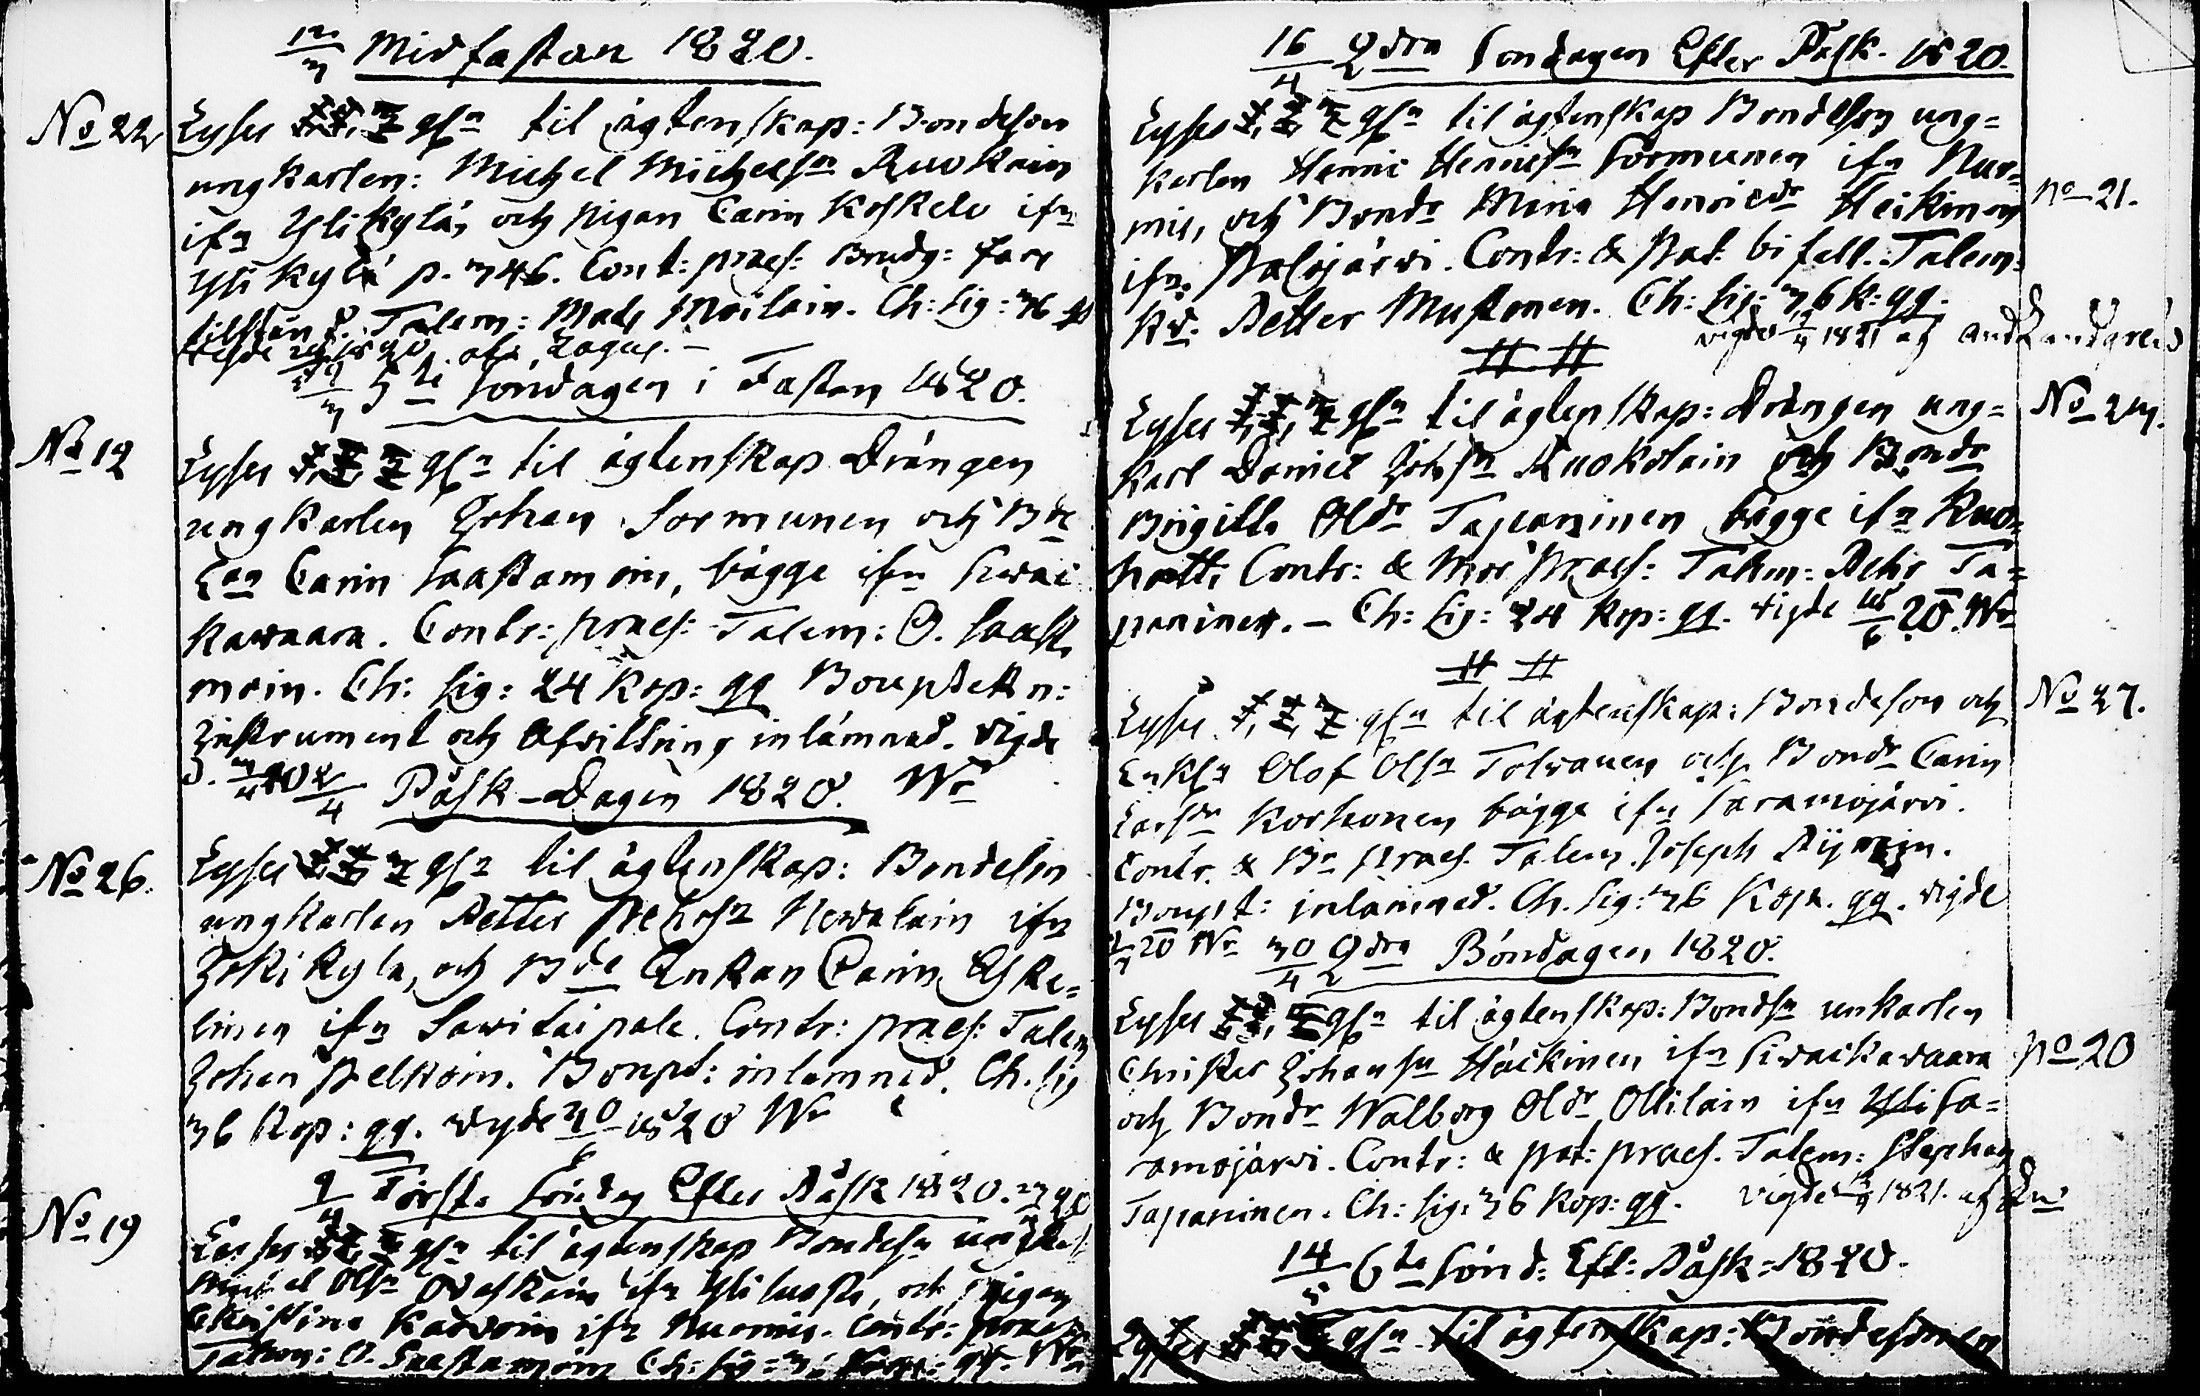 12/3 Midfastan 1820.
No 22 Lyses 1, 2, 3 gsn til ägtenskap: Bondeson
ungkarlen: Michel Michelsn Ruokoin
ifn Ylikylä, och pigan Carin Koskelo ifn
Ylikylä p. 346. Cont: præs: Brudg: fars
tillstånd. Talem: Mats Moilain. Ch: sig: 36
1820
19/3 5te söndagen i Fastan 1820.
No 12 Lyses 1, 2, 3 gsn til ägtenskap Drängen
ungkarlen Johan Sormunen och Bde
Enn Carin Saastamoin, bägge ifn Kuoi
kavaara. Contr: præs: Talem: O. Saasta
moin. Ch: sig: 24 kop: qq Boupptekn:
Instrument och Afvittring inlämnad. Vigde
d. 2/4 Påsk-Dagen 1820. Wr
No 26. Lyses 1, 2, 3 gsn til ägtenskap: Bondeson
ungkarlen Petter Pehrsn Nevalain ifn
Jokikylä, och Bde Enkan Carin Eske=
linen ifn Savitaipale. Contr: præs: Talem
Johan Pelkoin. Boupt: inlemned. Ch. sig
36 Kop: qq. Vigde 1820 Wr
9/4 Första Söndag Efter Påsk 1820.
No 19 Lyses 1, 2, 3 gsn til ägtenskap Bondesn
Olsn ifn och pigan
Christina ifn Nurmis. Contr: præs
Talem: O. Saastamoin Ch: sig: qq. Wr
16/4 2dra Söndagen Efter Påsk. 1820.
Lyses 1, 2, 3 gsn til ägtenskap Bondeson ung=
karlen Henric Henricsn Sormunen ifn Nur=
mis, och Bondr Maria Henricdr Heikinen no 21.
ifn Palojärvi. Contr: & Pat: bifall. Talem:
Petter Mustonen. Ch: sig: 36 k: qq.
vigde 1821 af
# #
Lyses 1, 2, 3 gsn til ägtenskap: Drängen ung= No 24.
karl Daniel Johsn Ruokolain och Bondr
Brigitta Olsdr Tapaninen bägge ifn Kuo=
hatti Contr: & Mor præs: Talem: Pehr Ta=
paninen. – Ch: sig: 24 kop: qq. Vigde 18/6 20. Wr
# #
Lyses 1, 2, 3 gsn til ägtenskap: Bondeson och No 27.
Enklg Olof Olsn Tolvanen och Bondr Carin
Larsdr Korhonen bägge ifn Saramojärvi.
Contr. & Br præs. Talem. Joseph
Boupt: inlämnad. Ch. sig: 36 Kop. qq. Vigde
20 Wr 30/4 2dra Böndagen 1820.
Lyses 1, 2, 3 gsn til ägtenskap: Bondsn unkarlen
Christer Johansn Häckinen ifn Kuoickavaara no 20
och Bondr Walborg Olsdr Ollilain ifn Ylisa=
ramojärvi. Contr: & pat: præs. Talem: Stephan
Tapaninen. Ch: sig: 36 kop: qq. Vigde 1821. af
14/5 6te Sönd: Eft: Påsk: 1820.
Lyses 1, 2, 3 gsn til ägtenskap: Bondesonen